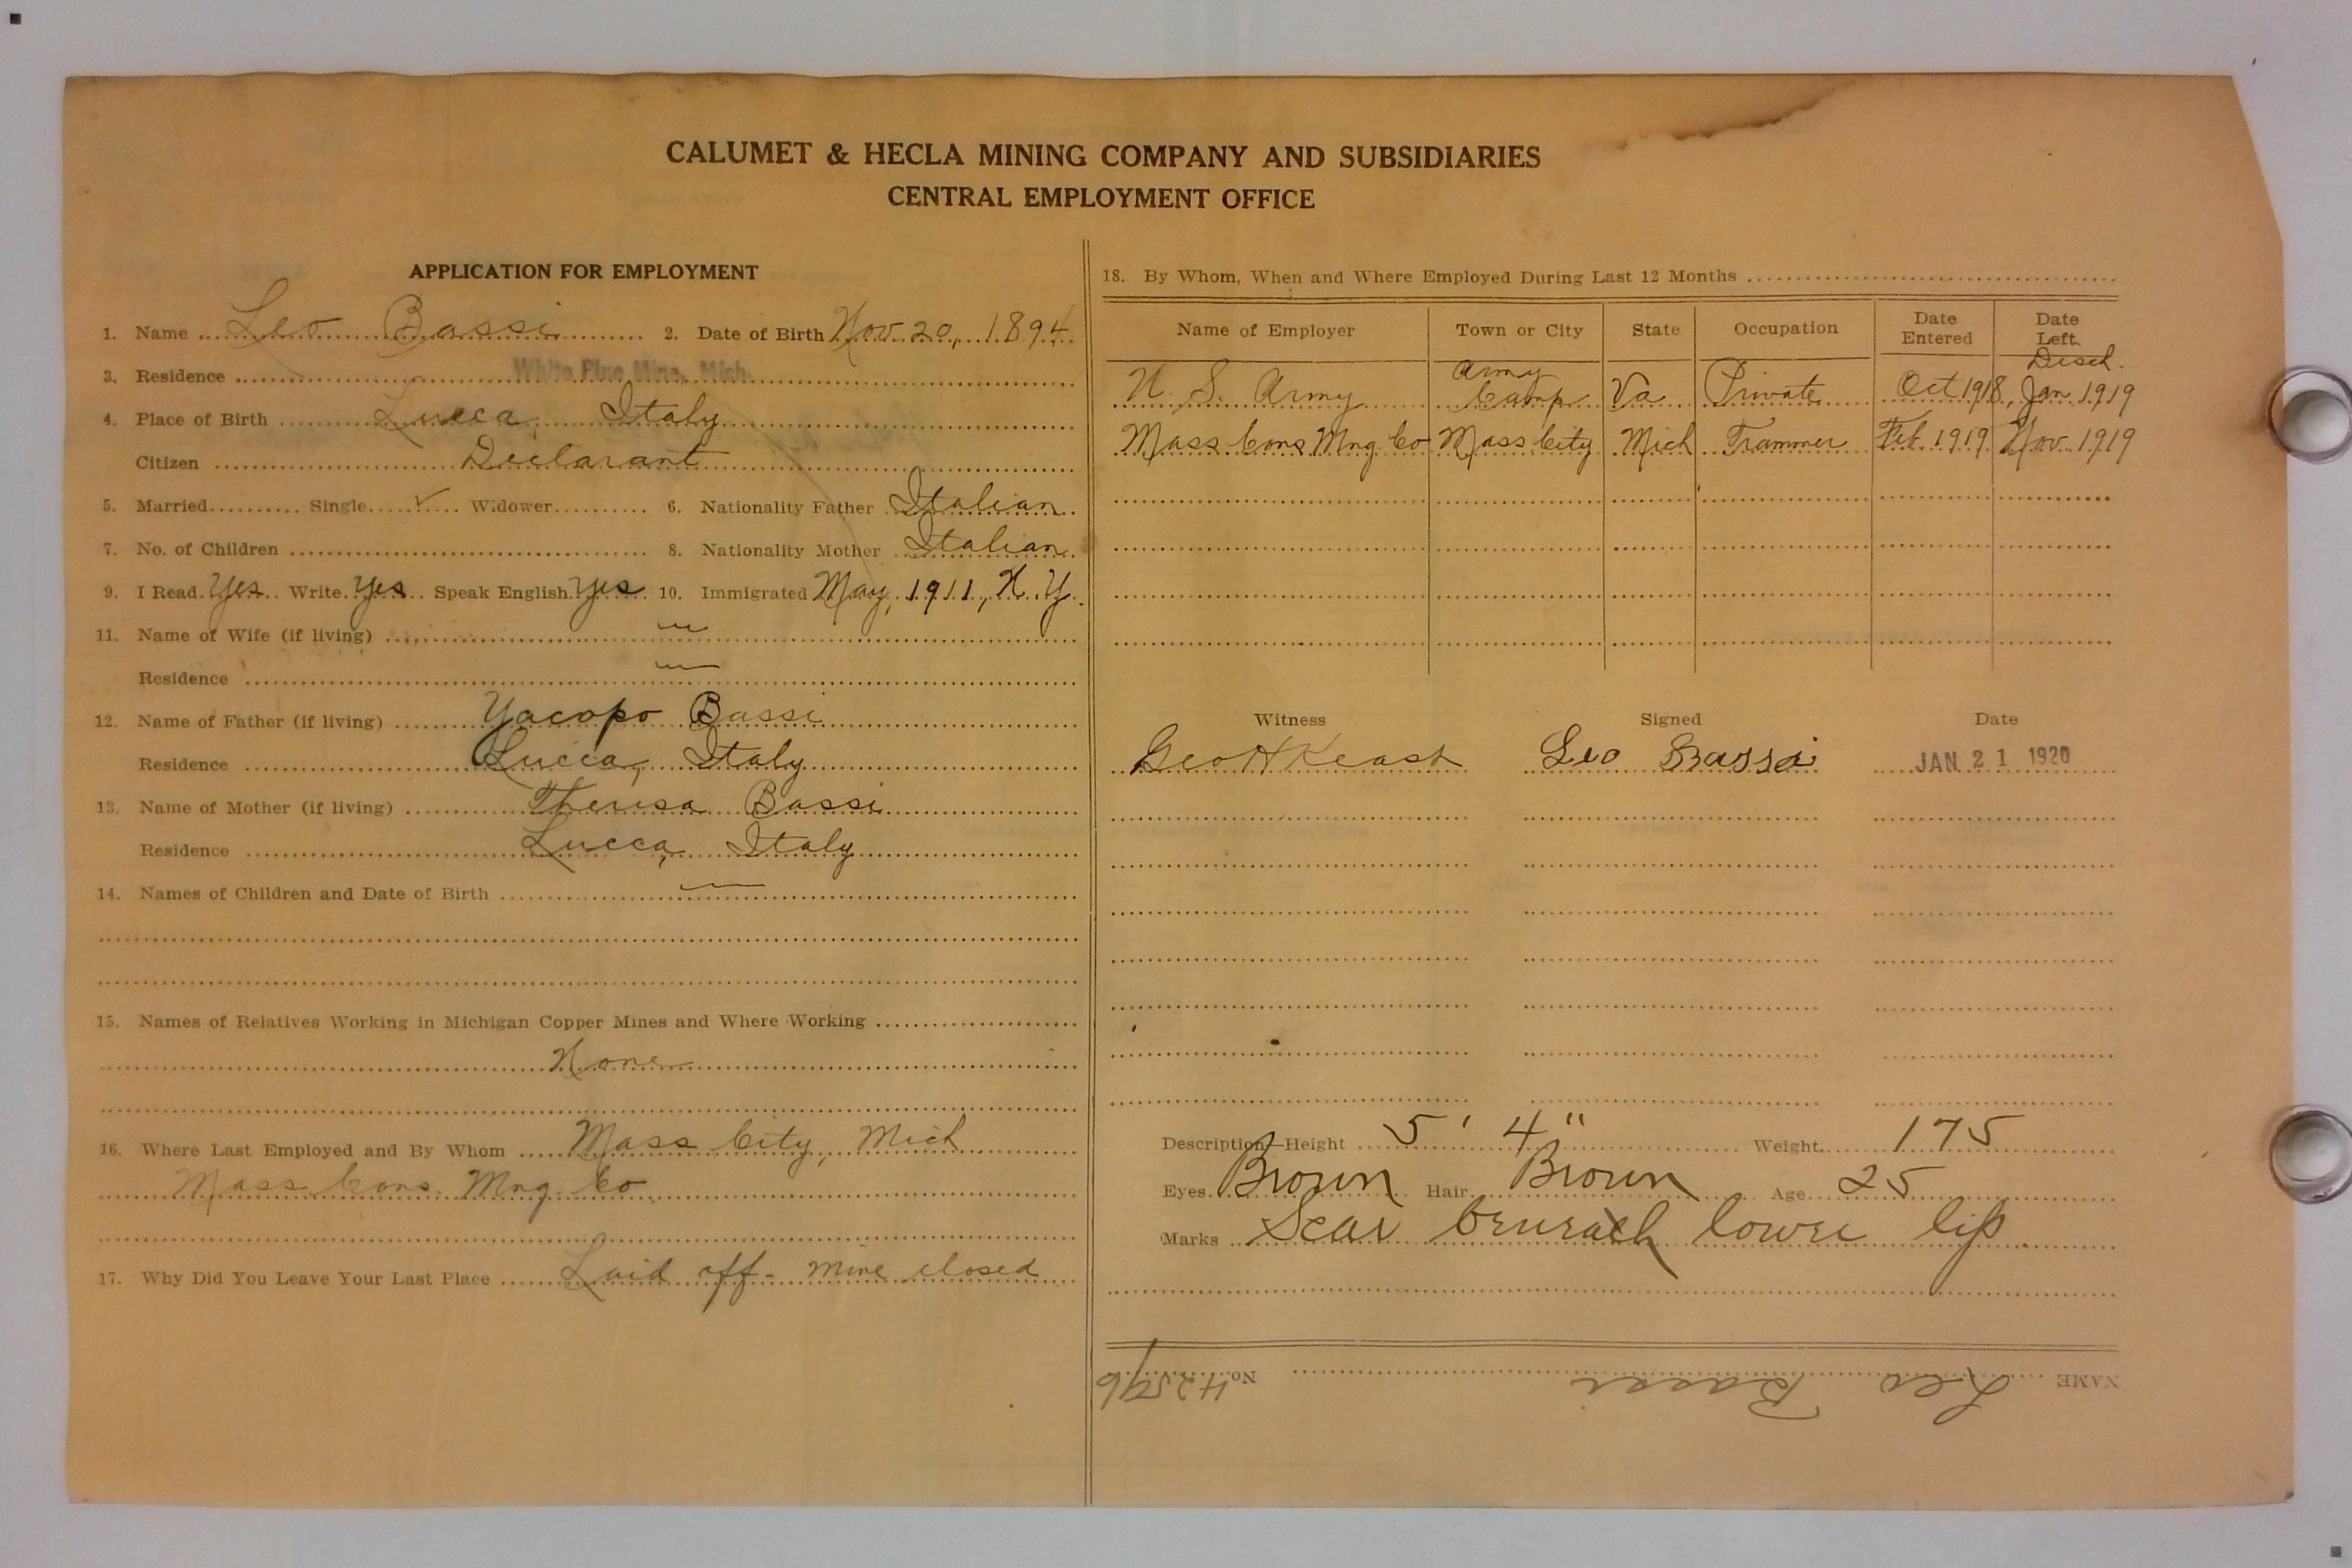 CALUMET & HECLA MINING COMPANY AND SUBSIDIARIES
CENTRAL EMPLOYMENT OFFICE
APPLICATION FOR EMPLOYMENT
1. Name Leo Bassi 2. Date of Birth Nov 20, 1894
3. Residence White Pine Mine, Mich.
4. Place of Birth Lucca, Italy
Citizen Declarant
5. Married Single ✓ Widower 6. Nationality Father Italian
7. No. of Children 8. Nationality Mother Italian
9. I Read Yes Write Yes Speak English Yes 10. Immigrated May, 1911, N.Y.
11. Name of Wife (if living) —
Residence —
12. Name of Father (if living) Yacopo Bassi
Residence Lucca, Italy
13. Name of Mother (if living) Theresa Bassi
Residence Lucca, Italy
14. Names of Children and Date of Birth —
15. Names of Relatives Working in Michigan Copper Mines and Where Working
None
16. Where Last Employed and By Whom Mass City, Mich
Mass Cons. Mng Co
17. Why Did You Leave Your Last Place Laid off - mine closed
18. By Whom, When and Where Employed During Last 12 Months
Name of Employer Town or City State Occupation Date Entered Date Left
U. S. Army Army Camp Va Private Oct 1918, Disch. Jan 1919
Mass Cons Mng Co Mass City Mich Trammer Feb. 1919 Nov. 1919
Witness Signed Date
Geo H Keast Leo Bassi JAN 21 1920
Description—Height 5' 4" Weight 175
Eyes Brown Hair Brown Age 25
Marks Scar beneath lower lip
NAME Leo Bassi No. 42596